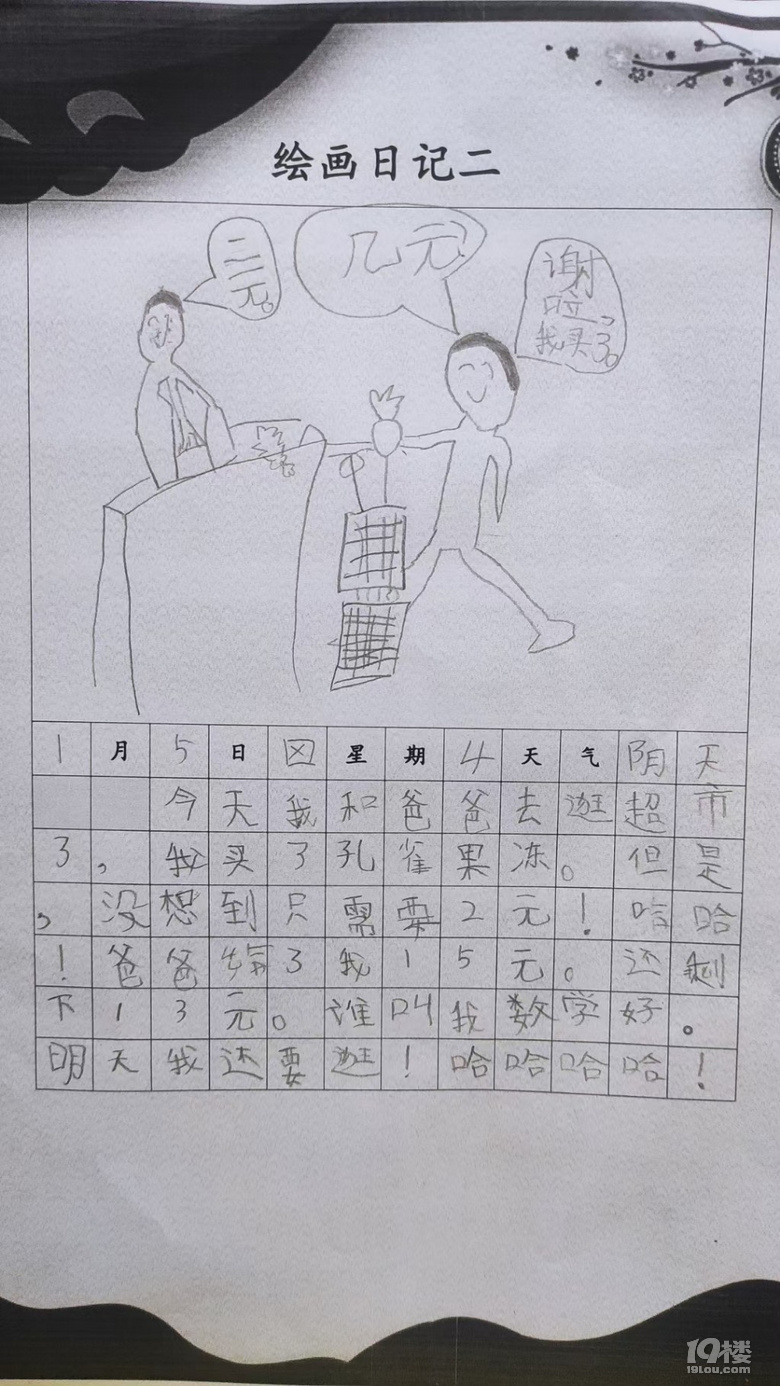 绘画日记二
二元。
几元
谢
啦,
我买了。
1月5日 星期4天气阴天
今天我和爸爸去逛超市
了,我买了孔雀果冻。但是
,没想到只需要2元!哈哈
!爸爸 了我15元。还剩
下13元。谁叫我数学好。
明天我还要逛!哈哈哈哈!
19楼
19lou.com